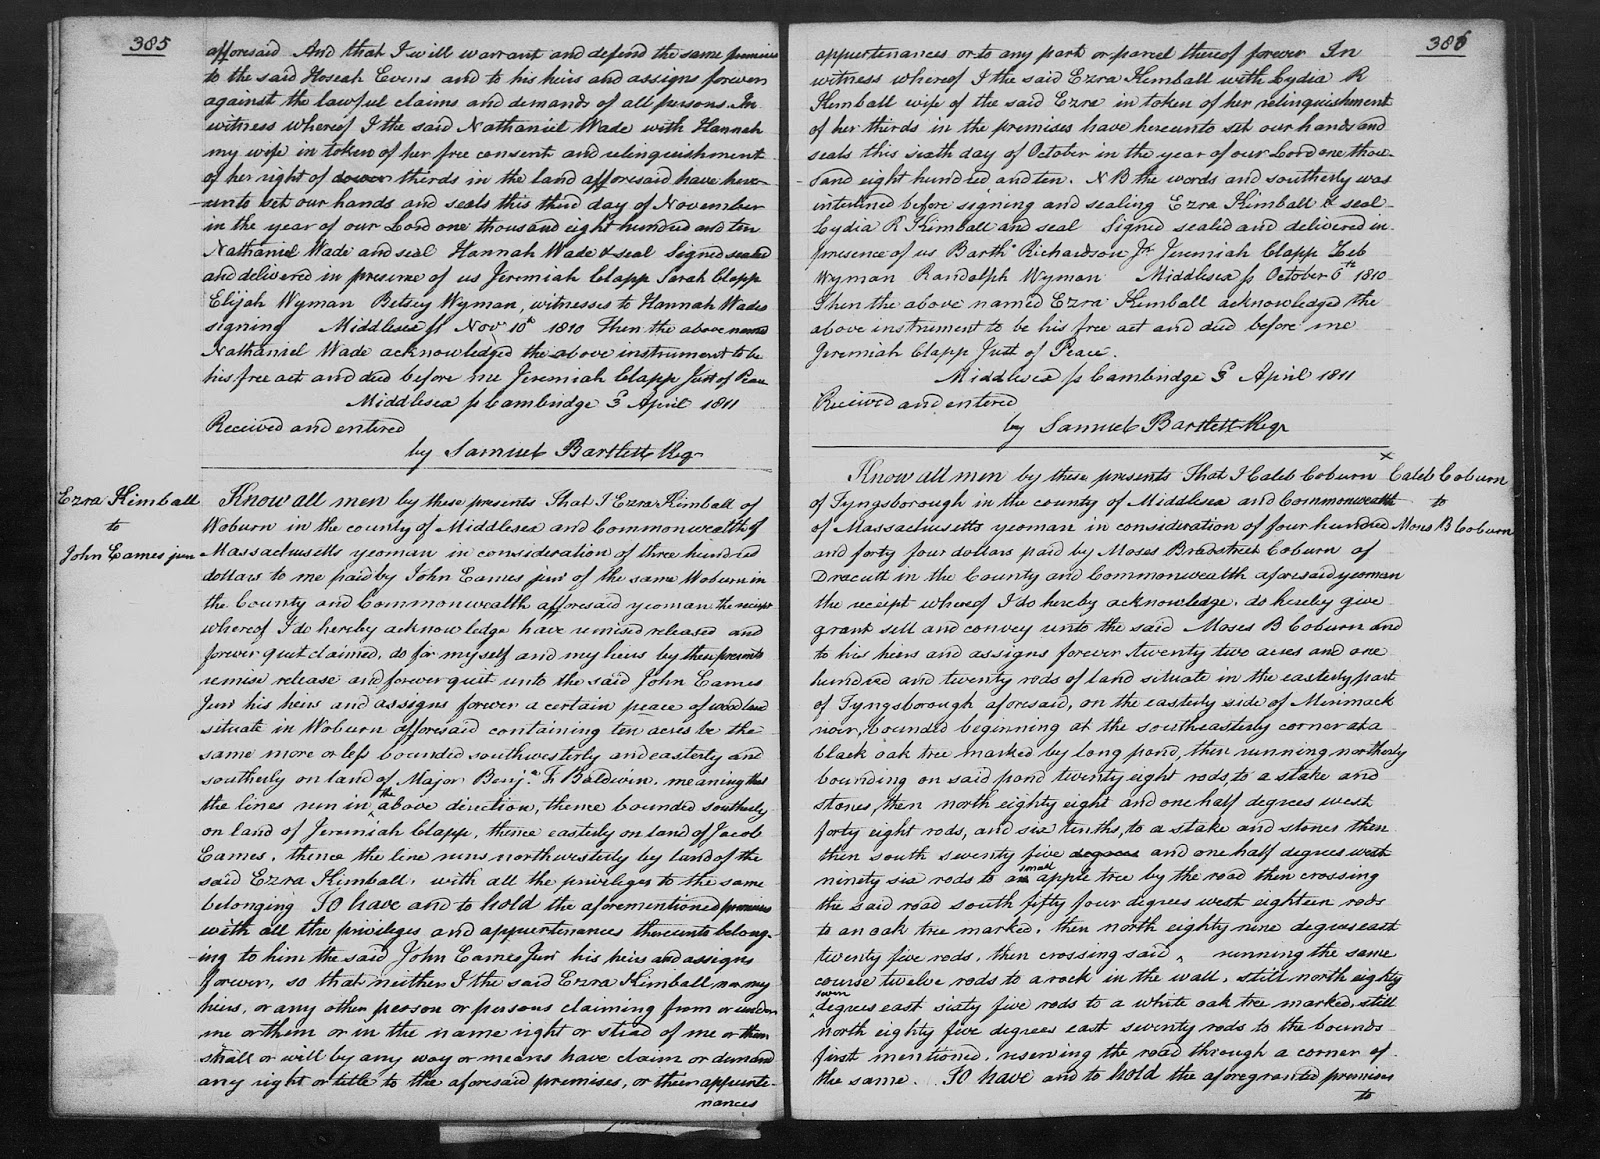 385
afforesaid And that I will warrant and defend the same premises
to the said Hoseah Evens and to his heirs and assigns forever
against the lawful claims and demands of all persons. In
witness whereof I the said Nathaniel Wade with Hannah
my wife in token of her free consent and relinquishment
of her right of dower thirds in the land afforesaid have here-
-unto set our hands and seals this third day of November
in the year of our Lord one thousand eight hundred and ten
Nathaniel Wade and seal Hannah Wade & seal Signed sealed
and delivered in presence of us Jeremiah Clapp Sarah Clapp
Elijah Wyman Betsey Wyman, witnesses to Hannah Wades
signing Middlesex ss Nov 10th 1810 Then the above named
Nathaniel Wade acknowledged the above instrument to be
his free act and deed before me Jeremiah Clapp Just of Peace
Middlesex ss Cambridge 3d April 1811
Received and entered
by Samuel Bartlett Reg
Ezra Kimball
to
John Eames jun
Know all men by these presents That I Ezra Kimball of
Woburn in the county of Middlesex and Commonwealth of
Massachusetts yeoman in consideration of three hundred
dollars to me paid by John Eames junr of the same Woburn in
the County and Commonwealth afforesaid yeoman the receipt
whereof I do hereby acknowledge have remised released and
forever quitclaimed, do for myself and my heirs by these presents
remise release and forever quit unto the said John Eames
Junr his heirs and assigns forever a certain peace of woodland
situate in Woburn afforesaid containing ten acres be the
same more or less bounded southwesterly and easterly and
southerly on land of Major Benja. F Baldwin. meaning that
the lines run in the above direction, thence bounded southerly
on land of Jeremiah Clapp, thence easterly on land of Jacob
Eames, thence the line runs northwesterly by land of the
said Ezra Kimball, with all the privileges to the same
belonging TO have and to hold the aforementioned premises
with all the privileges and appurtenances thereunto belong-
-ing to him the said John Eames Junr his heirs and assigns
forever, so that neither I the said Ezra Kimball nor my
heirs, or any other person or persons claiming from or under
me or them or in the name right or stead of me or them
shall or will by any way or means have claim or demand
any right or title to the aforesaid premises, or their appurte-
nances
386
appurtenances or to any part or parcel thereof forever In
witness whereof I the said Ezra Kimball with Lydia R
Kimball wife of the said Ezra in token of her relinquishment
of her thirds in the premises have hereunto set our hands and
seals this sixth day of October in the year of our Lord one thou-
-sand eight hundred and ten. N B the words and southerly was
interlined before signing and sealing Ezra Kimball & seal
Lydia R Kimball and seal Signed sealed and delivered in
presence of us Barth Richardson Jr Jeremiah Clapp Zeb
Wyman Randolph Wyman Middlesex ss October 6th 1810
Then the above named Ezra Kimball acknowledged the
above instrument to be his free act and deed before me
Jeremiah Clapp Just of Peace.
Middlesex ss Cambridge 3d April 1811
Received and entered
by Samuel Bartlett Regr
x
Caleb Coburn
to
Moses B Coburn
Know all men by these presents That I Caleb Coburn
of Tyngsborough in the county of Middlesex and Commonwealth
of Massachusetts yeoman in consideration of four hundred
and forty four dollars paid by Moses Bradstreet Coburn of
Dracutt in the County and Commonwealth aforesaid yeoman
the receipt whereof I do hereby acknowledge. do hereby give
grant sell and convey unto the said Moses B Coburn and
to his heirs and assigns forever twenty two acres and one
hundred and twenty rods of land situate in the easterly part
of Tyngsborough aforesaid, on the easterly side of Merimack
river, bounded beginning at the southeasterly corner at a
black oak tree marked by long pond, then running northerly
bounding on said pond twenty eight rods, to a stake and
stones, then north eighty eight and one half degrees west
forty eight rods, and six tenths, to a stake and stones then
then south seventy five degrees and one half degrees west
ninety six rods to a small apple tree by the road then crossing
the said road south fifty four degrees west eighteen rods
to an oak tree marked. then north eighty nine degrees east
twenty five rods, then crossing said ‸ running the same
course twelve rods to a rock in the wall, still north eighty
seven degrees east sixty five rods to a white oak tree marked, still
north eighty five degrees east seventy rods to the bounds
first mentioned. reserving the road through a corner of
the same. TO have and to hold the aforegranted premises
to